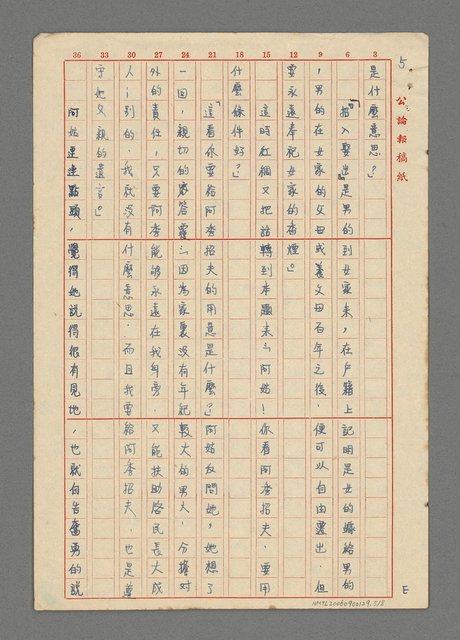 5.
公論報稿紙
36 33 30 27 24 21 18 15 12 9 6 3
是什麼意思?」
「招入娶出」是男的到女家來,在戶籍上記明是女的嫁給男的
,男的在女家的父母或養父母百年之後,便可以自由遷出,但
要永遠奉祀女家的香煙。」
這時紅綢又把話轉到本題來:「阿姑!你看阿秀招夫,要用
什麼條件好?」
「這看你要給阿秀招夫的用意是什麼?」阿姑反問她,她想了
一回,親切的答覆:「因為家裏沒有年紀較大的男人,分擔對
外的責任,只要阿秀能够永遠在我身旁,又能扶助啓民長大成
人;別的,我就沒有什麼意思,而且我要給阿秀招夫,也是遵
守她父親的遺言。」
阿姑連連點頭,覺得她說得很有見地,也就自告奮勇的說
E
NMTL20060900129.5/8